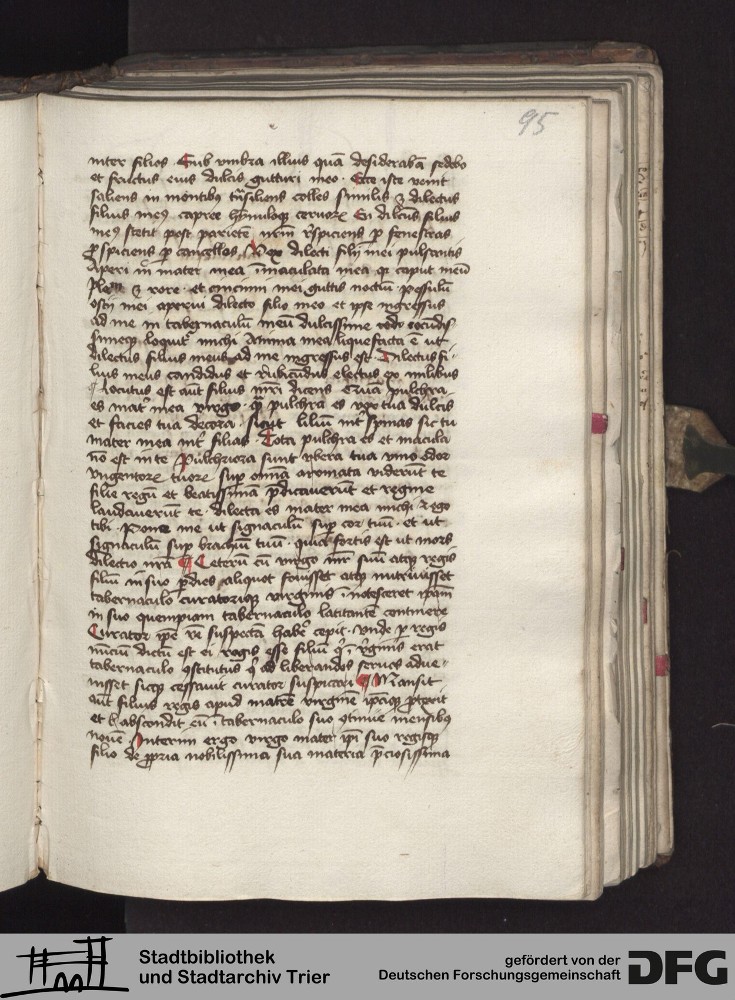 95
inter filios · Sub vmbra illius quā desiderabā sedebo
et fructus eius dulcis gutturi meo · Ecce iste venit
saliens in montibꝰ trāsiliens colles similis ē dilectus
filius meꝰ capree hÿnuloqꝫ ceruoꝝ En dilcūs filius
meꝰ stetit post parietē nrm̄ rſpiciens ꝑ fenestras
ꝓspiciens ꝑ cancellos · Vox dilecti filij mei pulsantis
Aperi m̄ mater mea ī maculata mea qꝛ caput meū
plenū ē rore · et cincinni mei guttis noctiū · pessulū
ostij mei aperui dilecto filio meo et ipse ingressus
ad me in tabernaculū meū dulcissime
loquit᷑ michi Anima mea liquefacta ē ut
dilectus filius meus ad me ingressus est · Dilectus fi-
lius meus candidus et rubicundus electus ex milibus
Locutus est aut̄ filius mr̄i dicens Quā pulchra
es mat᷑ mea virgo · qꝫ pulchra es vox tua dulcis
et facies tua decora · sicut lilium int᷑ spinas sic tu
mater mea int᷑ filias · Tota pulchra es et macula
nō est in te Pulchriora sunt vbera tua vino odor
vngentoꝝ tuoꝝ suꝑ om̄ia aromata viderūt te
filie regū et beatissimā p̄dicauerūt et regine
laudauerūt te · dilecta es mater mea michi ⁊ ego
tibi · Pone me ut signaculū suꝑ cor tuū · et ut
signaculū suꝑ brachiū tuū · quia fortis est ut mors
dilectio nr̄a Ceterū cū virgo mr̄ suū atqꝫ regis
filiū in suo ꝑ dies aliquot fouisset atqꝫ nutriuisset
tabernaculo curatoriqꝫ virginis ī notesceret ipām
in suo quempiam tabernaculo latitantē continere
Curator ip̄e rē suspectā habe᷑ cepit · vnde ꝑ regis
nūciū dictū est ei regis esse filiū qͥ ī v᷑ginis erat
tabernaculo ꝯstitutus qͥ ad liberandos seruos adue-
nisset sicqꝫ cessauit curator suspicari Mansit
aūt filius regis apud matrē virginē ipāqꝫ ꝓtexit
et abscondit eū ī tabernaculo suo ꝯtinue mensibꝰ
nouē · Interim ergo virgo mater ip̄i suo regisqꝫ
filio de ꝓpria nobilissima sua materia p̄ciosissima
Stadtbibliothek
und Stadtarchiv Trier
gefördert von der
Deutschen Forschungsgemeinschaft
DFG